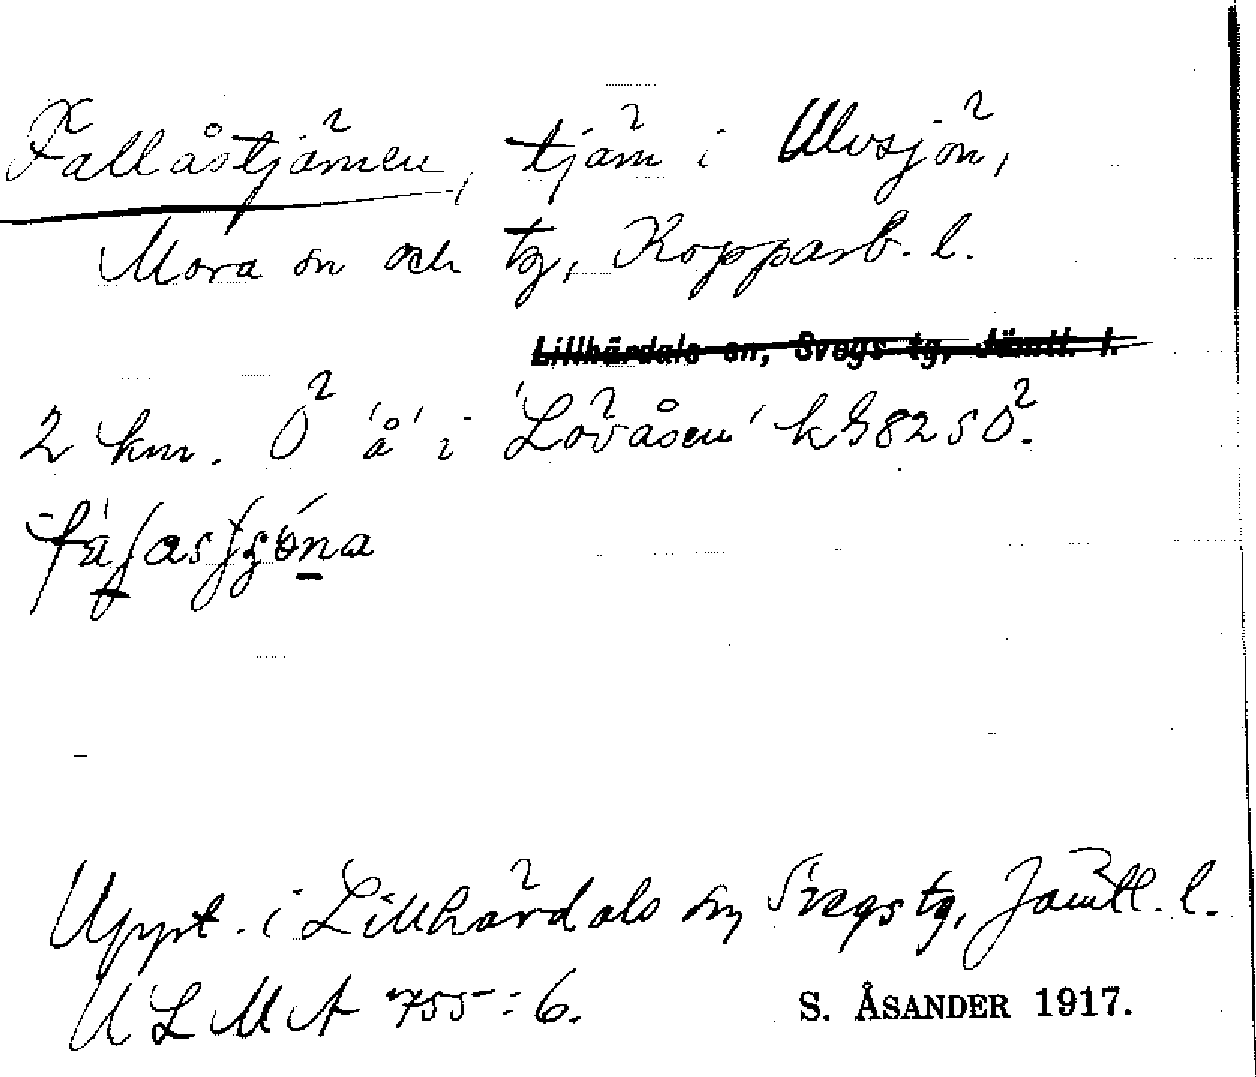 Fallåstjärnen, tjärn i Ulvsjön,
Mora sn och tg, Kopparb. l.
Lillhärdals sn, Svegs tg, Jämtl. l.
2 km. Ö 'å' i 'Lövåsen' k 982 SÖ.
Uppt. i Lillhärdals sn, Svegs tg, Jämtl. l.
ULMA 755:6.
S. ÅSANDER 1917.